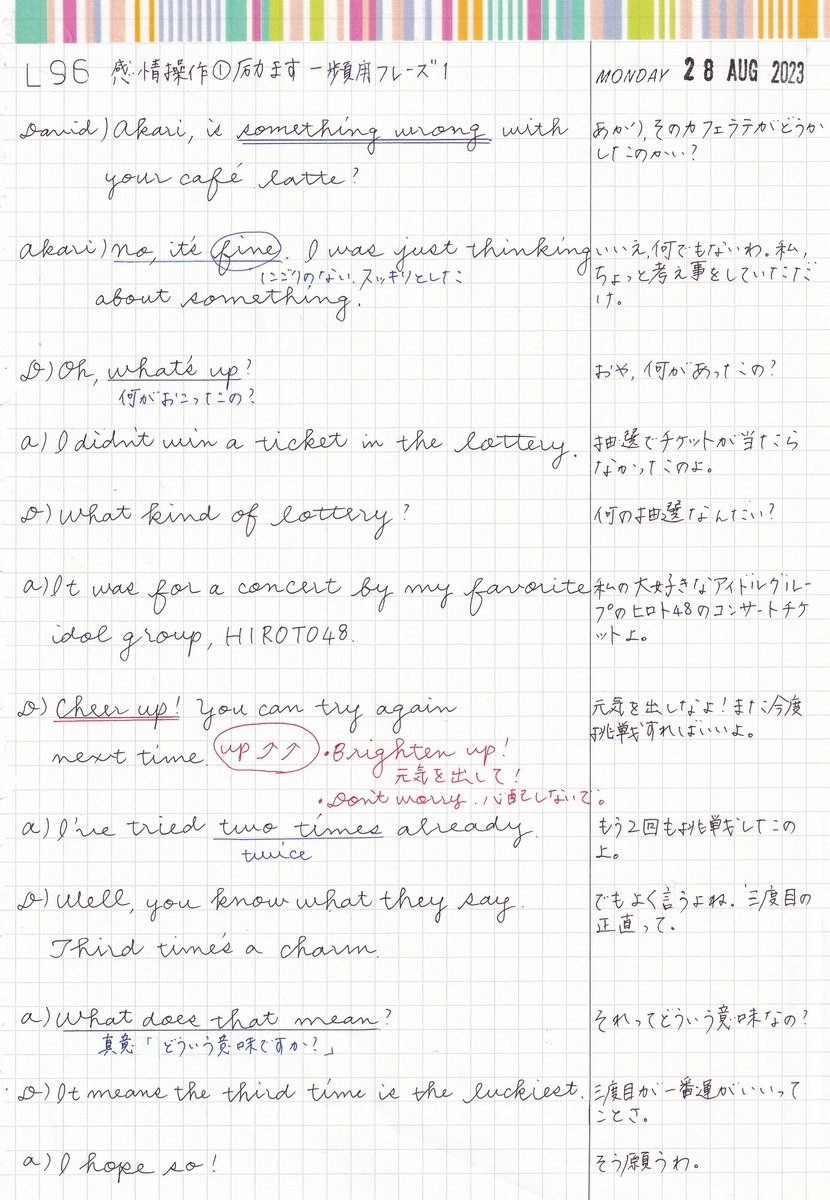 L96 感情操作①励ます－頻用フレーズ1
MONDAY 28 AUG 2023
David) Akari, is something wrong with
your café latte?
あかり, そのカフェラテがどうか
したのかい?
Akari) No, it's fine. I was just thinking
にごりのない、スッキリとした
about something.
いいえ, 何でもないわ。私,
ちょっと考え事をしていただ
け。
D) Oh, what's up?
何がおこったの?
おや, 何があったの?
a) I didn't win a ticket in the lottery.
抽選でチケットが当たら
なかったのよ。
D) What kind of lottery?
何の抽選なんだい?
a) It was for a concert by my favorite
idol group, HIROTO48.
私の大好きなアイドルグルー
プのヒロト48のコンサートチケ
ットよ。
D) Cheer up! You can try again
next time. up ↗↗ ・Brighten up!
元気を出して!
・Don't worry. 心配しないで。
元気を出しなよ! また今度
挑戦すればいいよ。
a) I've tried two times already.
twice
もう2回も挑戦したの
よ。
D) Well, you know what they say.
Third time's a charm.
でもよく言うよね. 三度目の
正直って.
a) What does that mean?
真意「どういう意味ですか?」
それってどういう意味なの?
D) It means the third time is the luckiest.
三度目が一番運がいいって
ことさ。
a) I hope so!
そう願うわ。